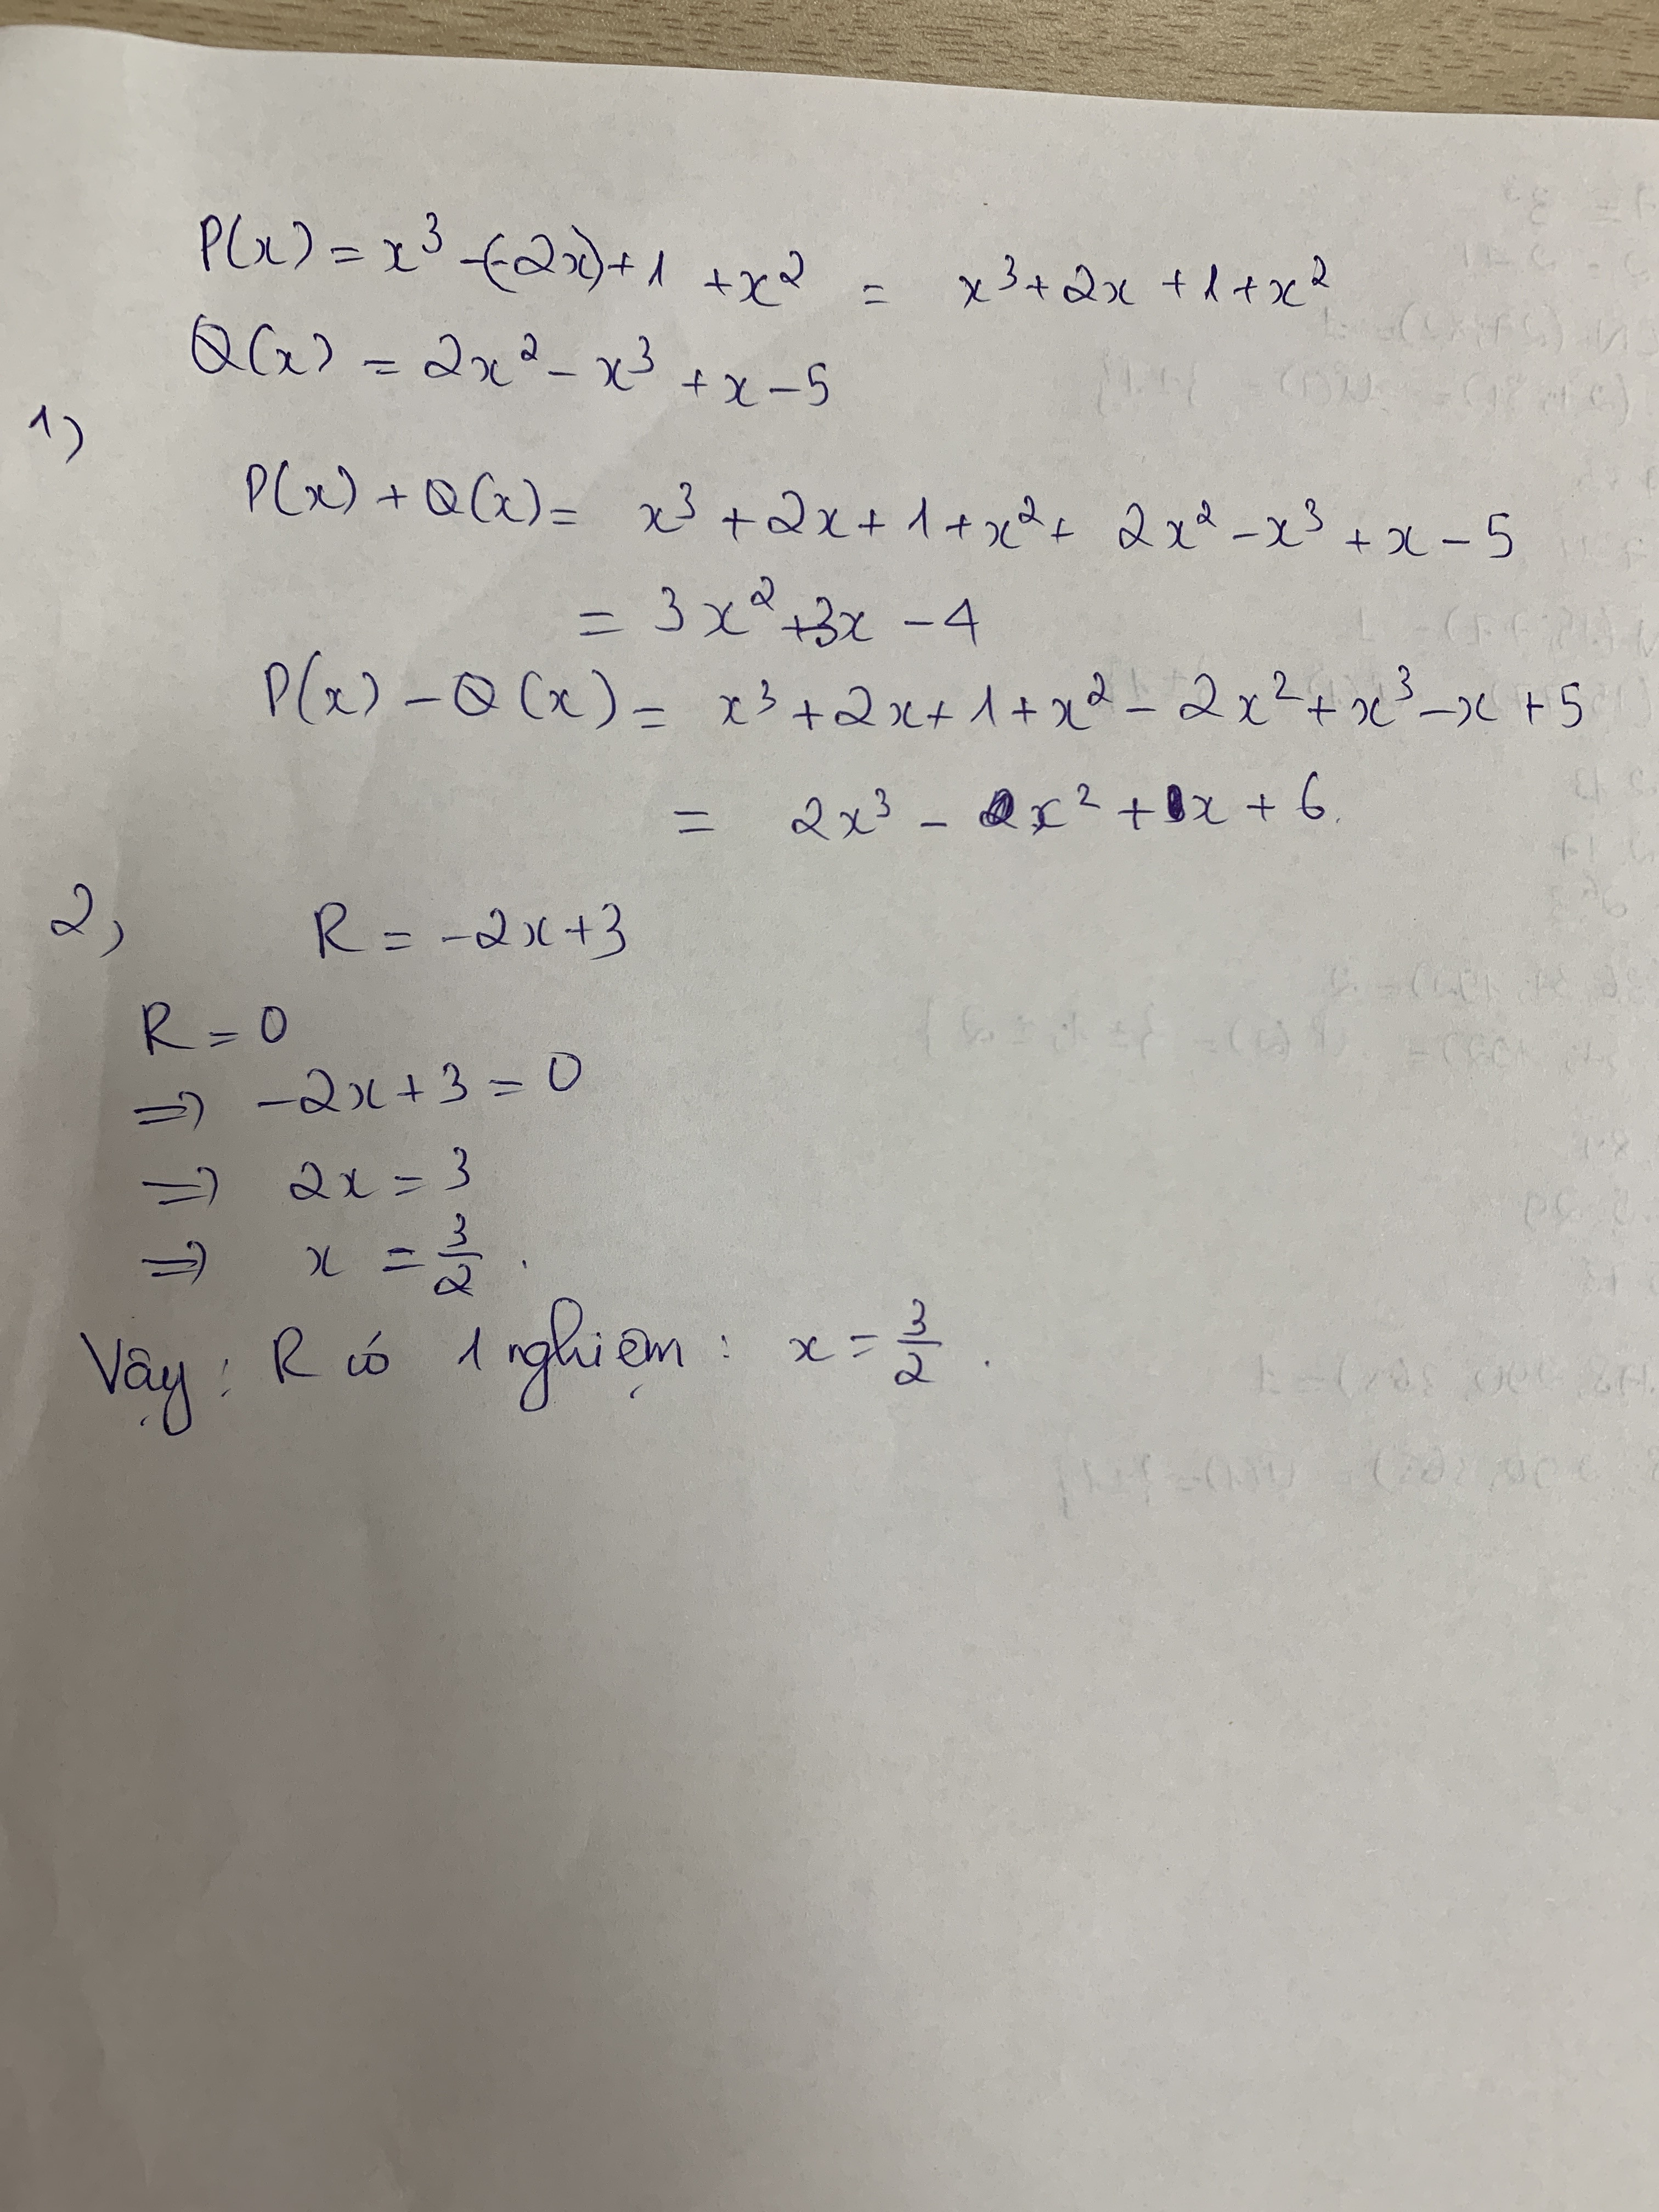 P(x) = x³ -(-2x) + 1 + x² = x³ + 2x + 1 + x²
Q(x) = 2x² - x³ + x - 5
1)
P(x) + Q(x) = x³ + 2x + 1 + x² + 2x² - x³ + x - 5
= 3x² + 3x - 4
P(x) - Q(x) = x³ + 2x + 1 + x² - 2x² + x³ - x + 5
= 2x³ - x² + x + 6.
2,
R = -2x + 3
R = 0
=> -2x + 3 = 0
=> 2x = 3
=> x = 3/2.
Vậy: R có 1 nghiệm: x = 3/2.